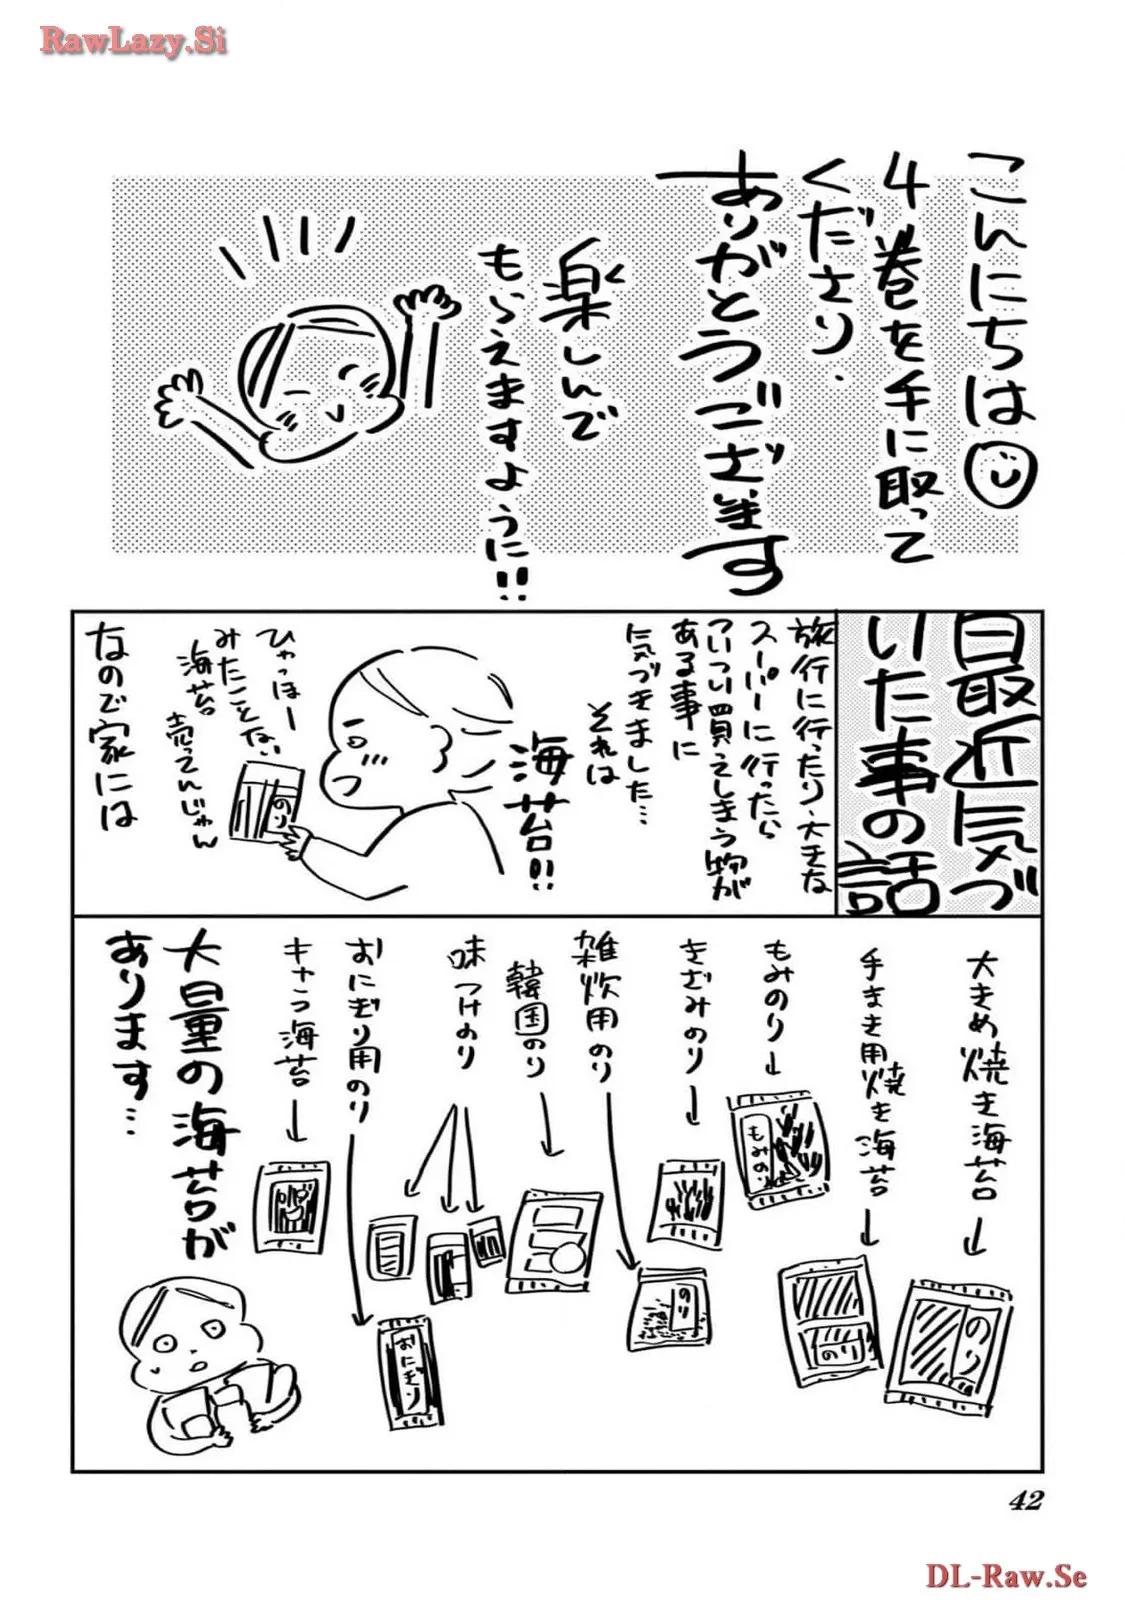 RawLazy.Si
こんにちは
4巻を手に取って
くださり、
ありがとうございます
楽しんで
もらえますように!!
最近気づ
いた事の話
旅行に行ったり、大きな
スーパーに行ったら
ついつい買えてしまう物が
ある事に
気づきました…
それは
海苔!!
のり
ひゃっほー
みたことない
海苔
売ってんじゃん
なので家には
大きめ焼き海苔
手まき用焼き海苔
もみのり
きざみのり
雑炊用のり
韓国のり
味つけのり
おにぎり用のり
キャラ海苔
もみの
のり
のり
のり
おにぎり
大量の海苔が
あります…
42
DL-Raw.Se